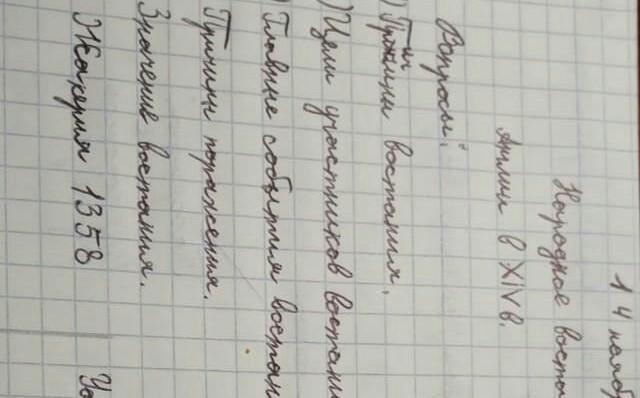 14 нояб
Народное воста
Англии в XIV в.
Вопросы:
) Причины востания.
) Цели участников востани
) Главные события востан
Причины поражения.
Значение востания.
Жакерия 1358 Уо